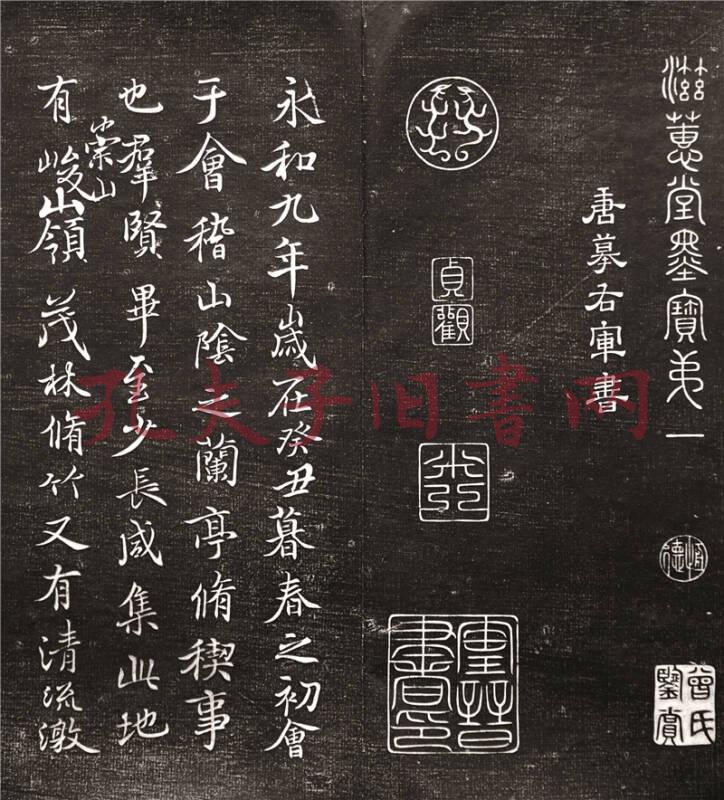 滋蕙堂墨寶弟一
曾氏
鑒賞
唐摹右軍書
貞觀
永和九年歲在癸丑暮春之初會
于會稽山陰之蘭亭脩稧事
也羣賢畢至少長咸集此地
有崇山峻領茂林脩竹又有清流激
孔夫子旧书网